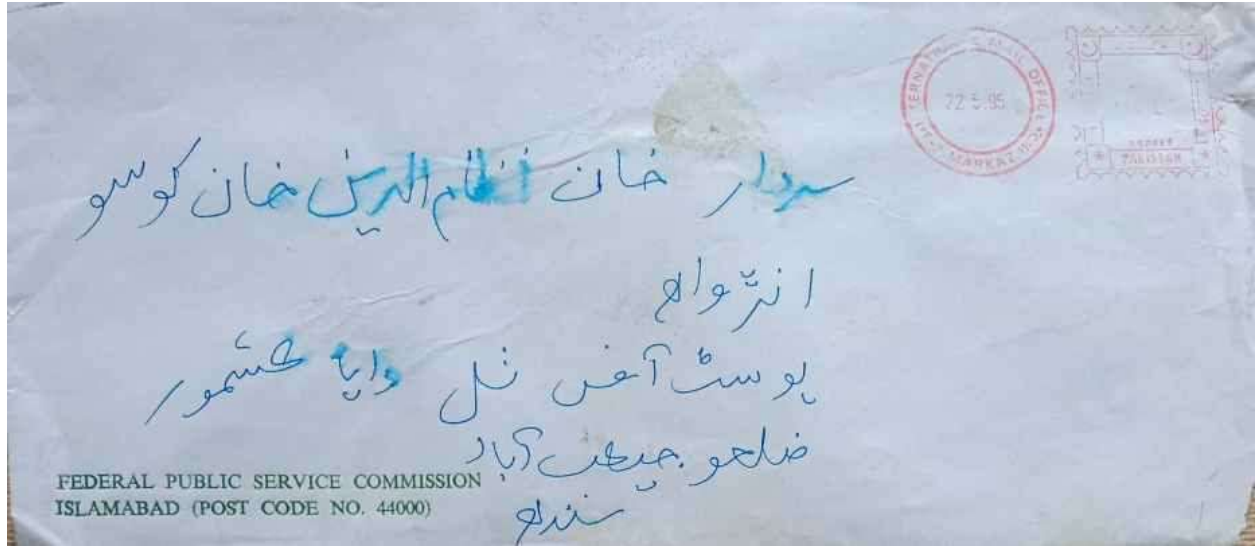 INTERNATIONAL MAIL OFFICE
22.5.95
PAKISTAN
سردار خان نظام الدين خان کوسو
پوسٽ آفس ٺل وايا ڪشمور
ضلعو جيڪب آباد
سنڌ
FEDERAL PUBLIC SERVICE COMMISSION
ISLAMABAD (POST CODE NO. 44000)